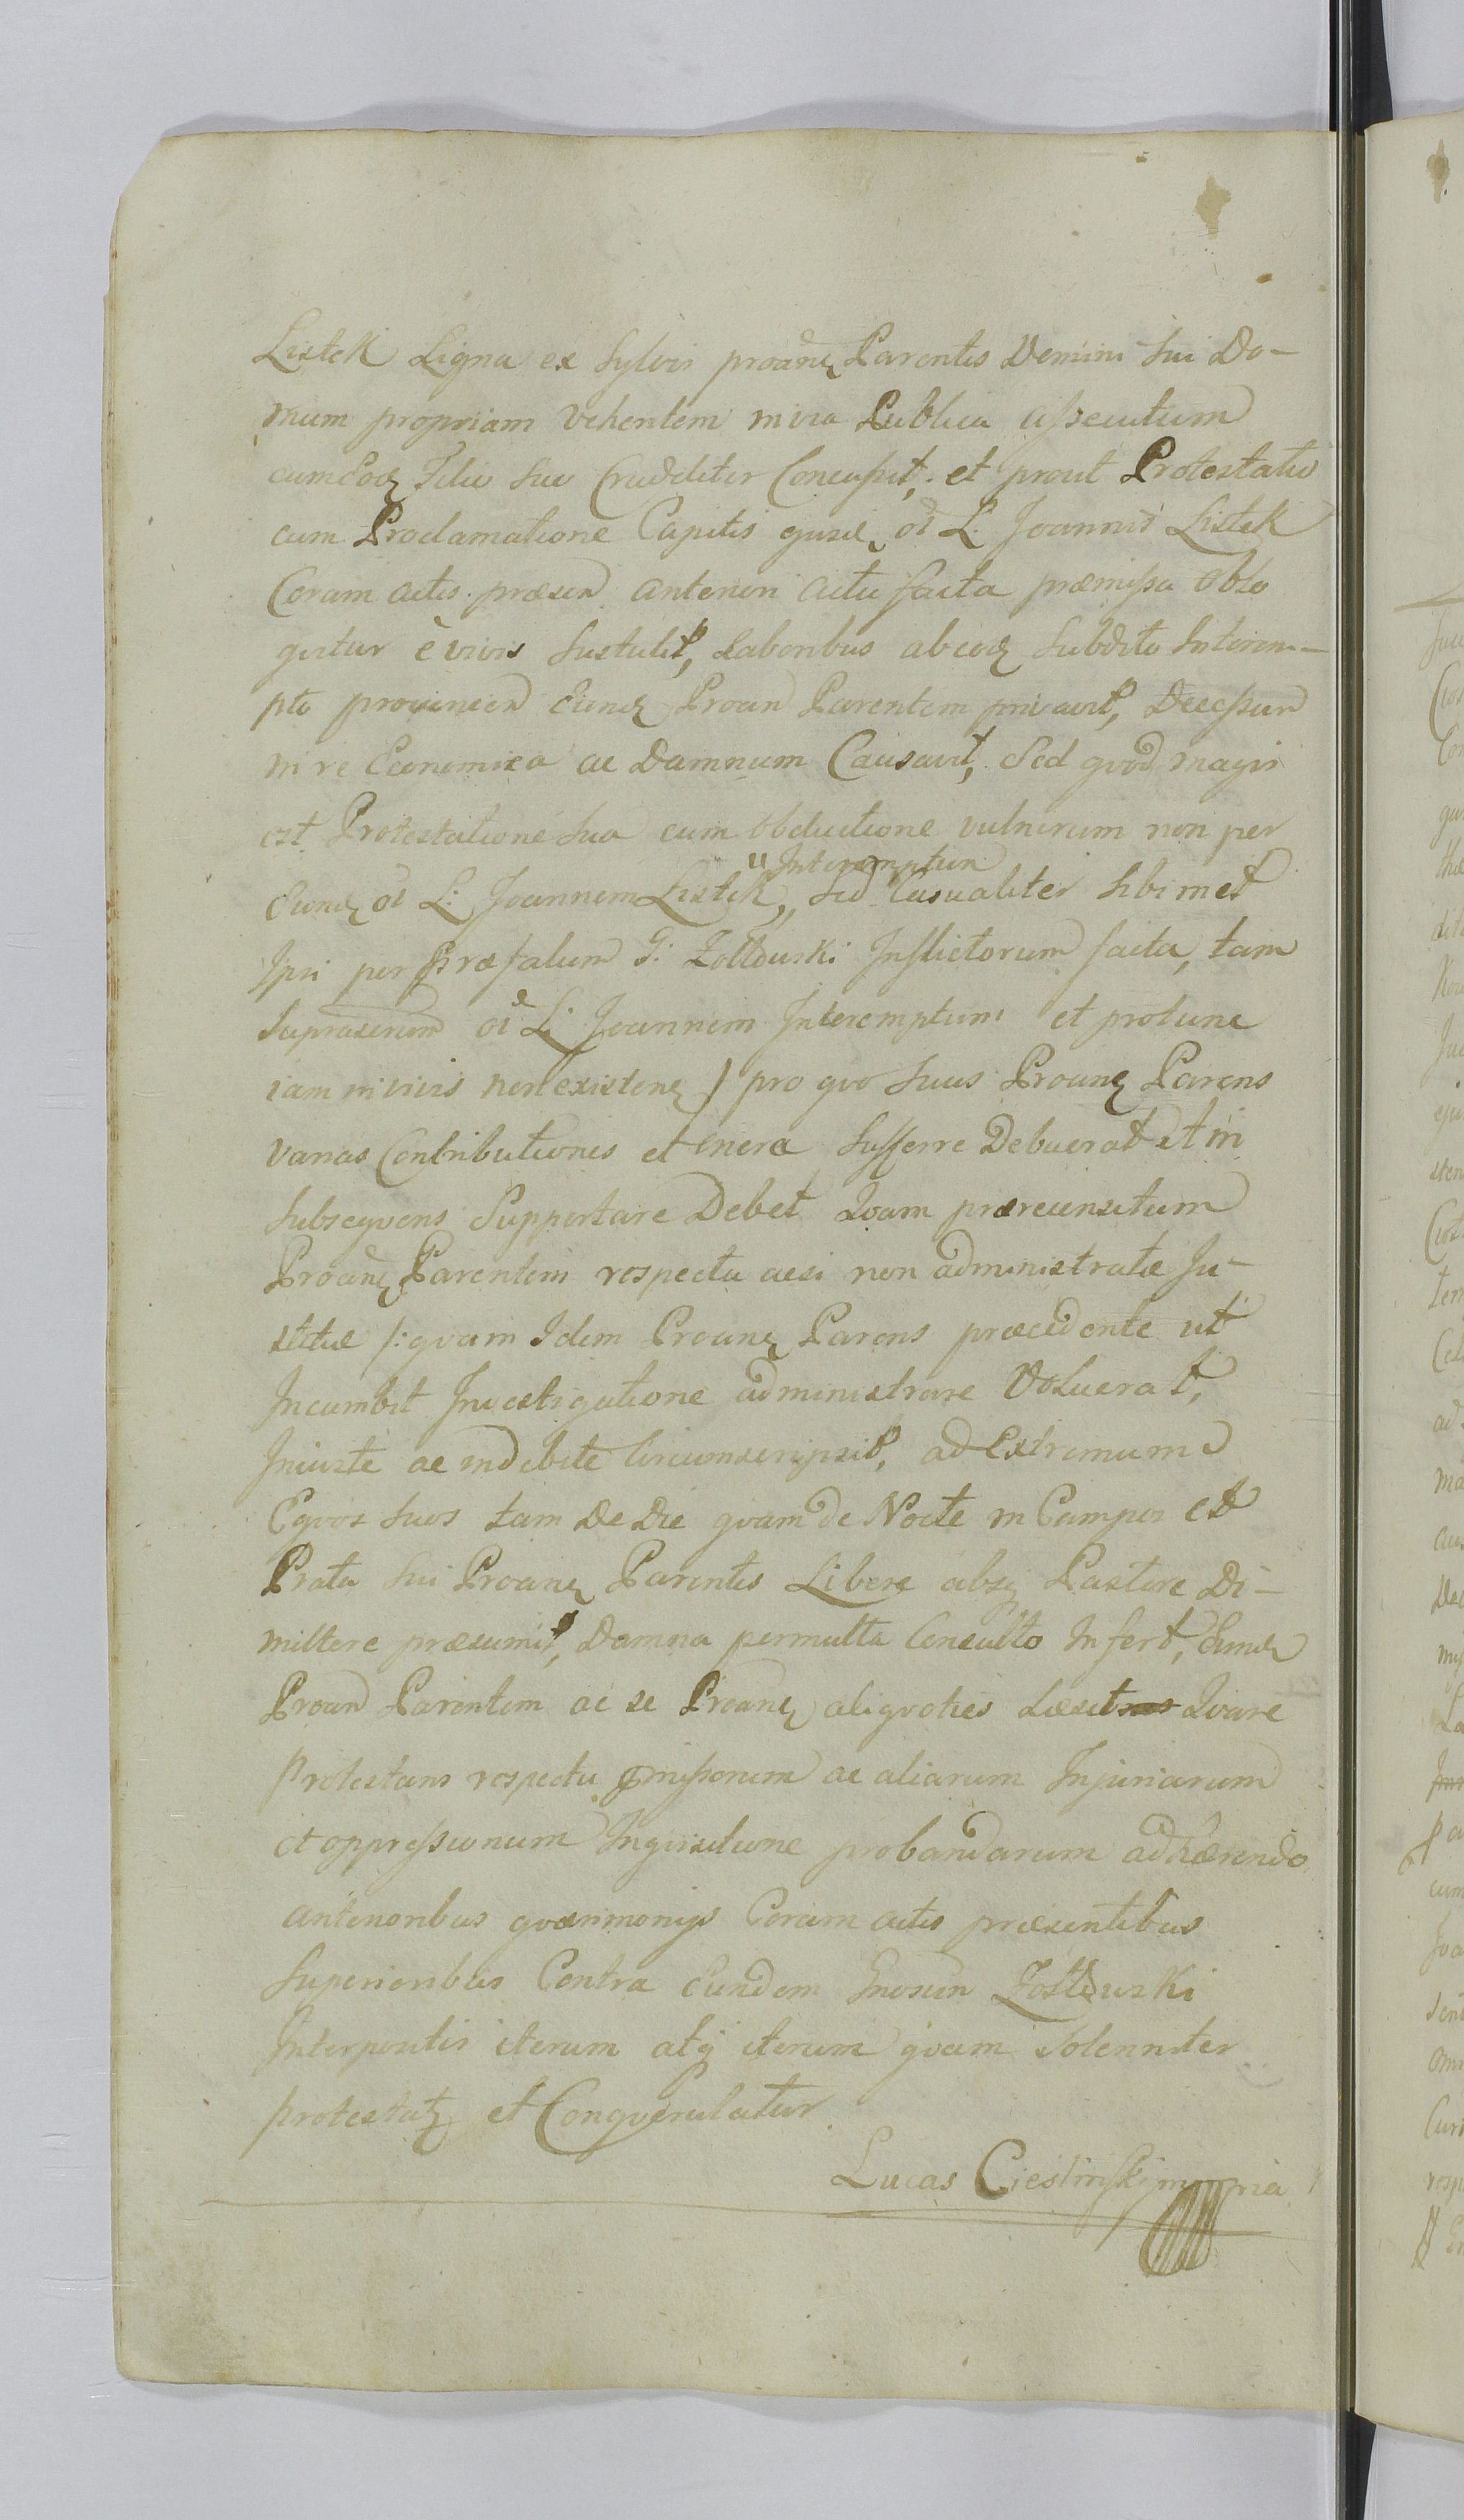 Listek Ligna ex Sylvis proanẽ Parentis Domini Sui Do-
mum propriam Vehentem in via Publica assecutum
cum Eodz Filio Suo Crudeliter Concussit, et prout Protestatio
cum Proclamatione Capitis ejusd, oi L. Joannis Listek
Coram actis præsen anteriori actu facta præmissa oblo
quitur è vivis Sustulit, Laboribus ab eodz Subdito Interem-
pto provenien Eundz Proan Parentem privavit, Decessum
in re Economica ac Damnum Causavit, Sed quod magis
est Protestatione Sua cum Obductione vulnerum non per
Eundz oi L: Joannem Listek,, Sed Casualiter Sibimet
" Interemptum
Ipsi per Præfatum G: Zołtowski Inflictorum facta, tam
Suprascrum oi L: Joannem Interemptum et pro tunc
iam in vivis non existenz) pro quo Suus Proanẽ Parens
varias Contributiones et onera Sufferre Debuerat et in
Subsequens Supportare Debet Quam prærecensitum
Proanẽ Parentem respectu acsi non administratæ Ju-
stitiæ /: quam Idem Proanẽ Parens præcedente ut
Incumbit Investigatione administrare Voluerat,
Iniuste ac indebite Circumscripsit, ad Extremum
Equos Suos tam De Die quam de Nocte in Campos et
Prata Sui Proanẽ Parentis Libere absq Pastore Di-
mittere præsumit, Damna permulta Consulto Infert, Eundz
Proan Parentem ac se Proanẽ aliquoties Læsit Quare
Protestans respectu pmissorum ac aliarum Injuriarum
et oppressionum Inquisitione probandarum adhærendo
anterioribus quærimonijs Coram actis præsentibus
Superioribus Contra Eundem Gnosum Zołtowski
Interpositis iterum atq iterum quam Solenniter
protestatz et Conquerulatur
Lucas Cieslinski mppria